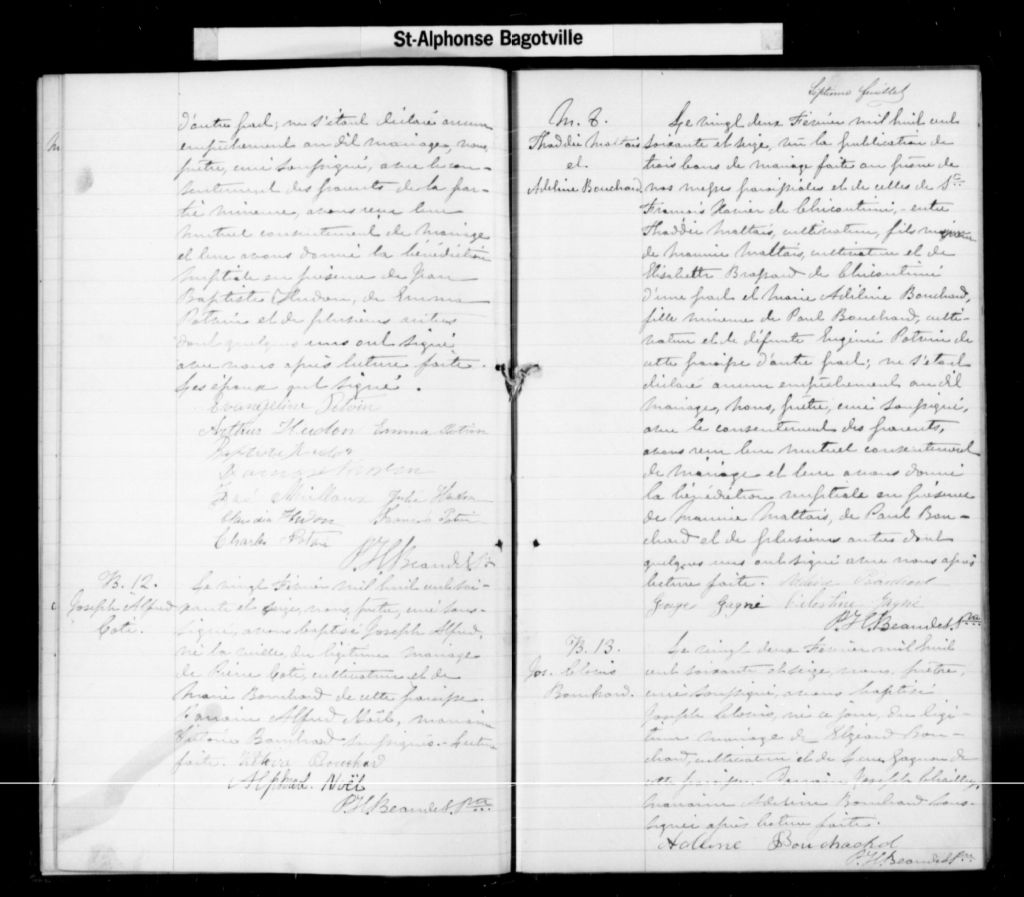 St-Alphonse Bagotville
M
d'autre part; ne s'étant déclaré aucun
empêchement au dit mariage, nous,
prêtre, curé soussigné, avec le con-
sentement des parents de la par-
tie mineure, avons reçu leur
mutuel consentement de mariage
et leur avons donné la bénédiction
nuptiale en présence de Jean
Baptiste Hudon, de Emma
Potvin et de plusieurs autres
dont quelques uns ont signé
avec nous après lecture faite.
Les époux ont signé.
Evangéline Potvin
Arthur Hudon Emma Potvin
Hudon
Julie Hudon
Claudia Hudon François Potvin
Charles Potvin
P.H. Beaudet Ptre
B. 12.
Joseph Alfred
Coté.
Le vingt Février mil huit cent soi-
xante et seize, nous, prêtre, curé sous-
signé, avons baptisé Joseph Alfred,
né la veille, du légitime mariage
de Pierre Coté, cultivateur et de
Marie Bouchard de cette paroisse.
Parrain Alfred Noël, marraine
Bouchard soussignés. Lecture
faite. Bouchard
Alphred. Noël
P.H. Beaudet Ptre
Septième feuillet
M. 6.
Thaddée Maltais
et
Adeline Bouchard.
Le vingt deux Février mil huit cent
soixante et seize, vu la publication de
trois bans de mariage faite au prône de
nos messes paroissiales et de celles de St
François Xavier de Chicoutimi, - entre
Thaddée Maltais, cultivateur, fils majeur
de Maltais, cultivateur et de
Elisabeth Brassard de Chicoutimi
d'une part et Marie Adéline Bouchard,
fille mineure de Paul Bouchard, culti-
vateur et de défunte Eugénie Potvin de
cette paroisse d'autre part; ne s'étant
déclaré aucun empêchement au dit
mariage, Nous, prêtre, curé soussigné,
avec le consentement des parents,
avons reçu leur mutuel consentement
de mariage et leur avons donné
la bénédiction nuptiale en présence
de Maltais, de Paul Bou-
chard et de plusieurs autres dont
quelques uns ont signé avec nous après
lecture faite. Bouchard
Georges Gagné Célestine Gagné
P.H. Beaudet, Ptre
B. 13.
Jos. Clovis
Bouchard.
Le vingt deux Février mil huit
cent soixante et seize, nous, prêtre,
curé soussigné, avons baptisé
Joseph Clovis, né ce jour, du légi-
time mariage de Elzéard Bou-
chard, cultivateur et de Gagnon de
cette paroisse. Parrain, Joseph
marraine Adeline Bouchard sous-
signée après lecture faite.
Adeline Bouchard
P.H. Beaudet Ptre